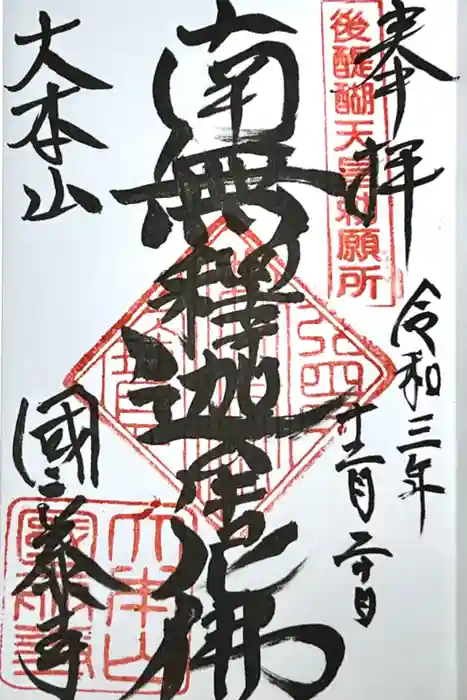 奉拝
後醍醐天皇勅願所
令和三年
十二月二十日
南無釋迦牟尼佛
大本山
國泰寺